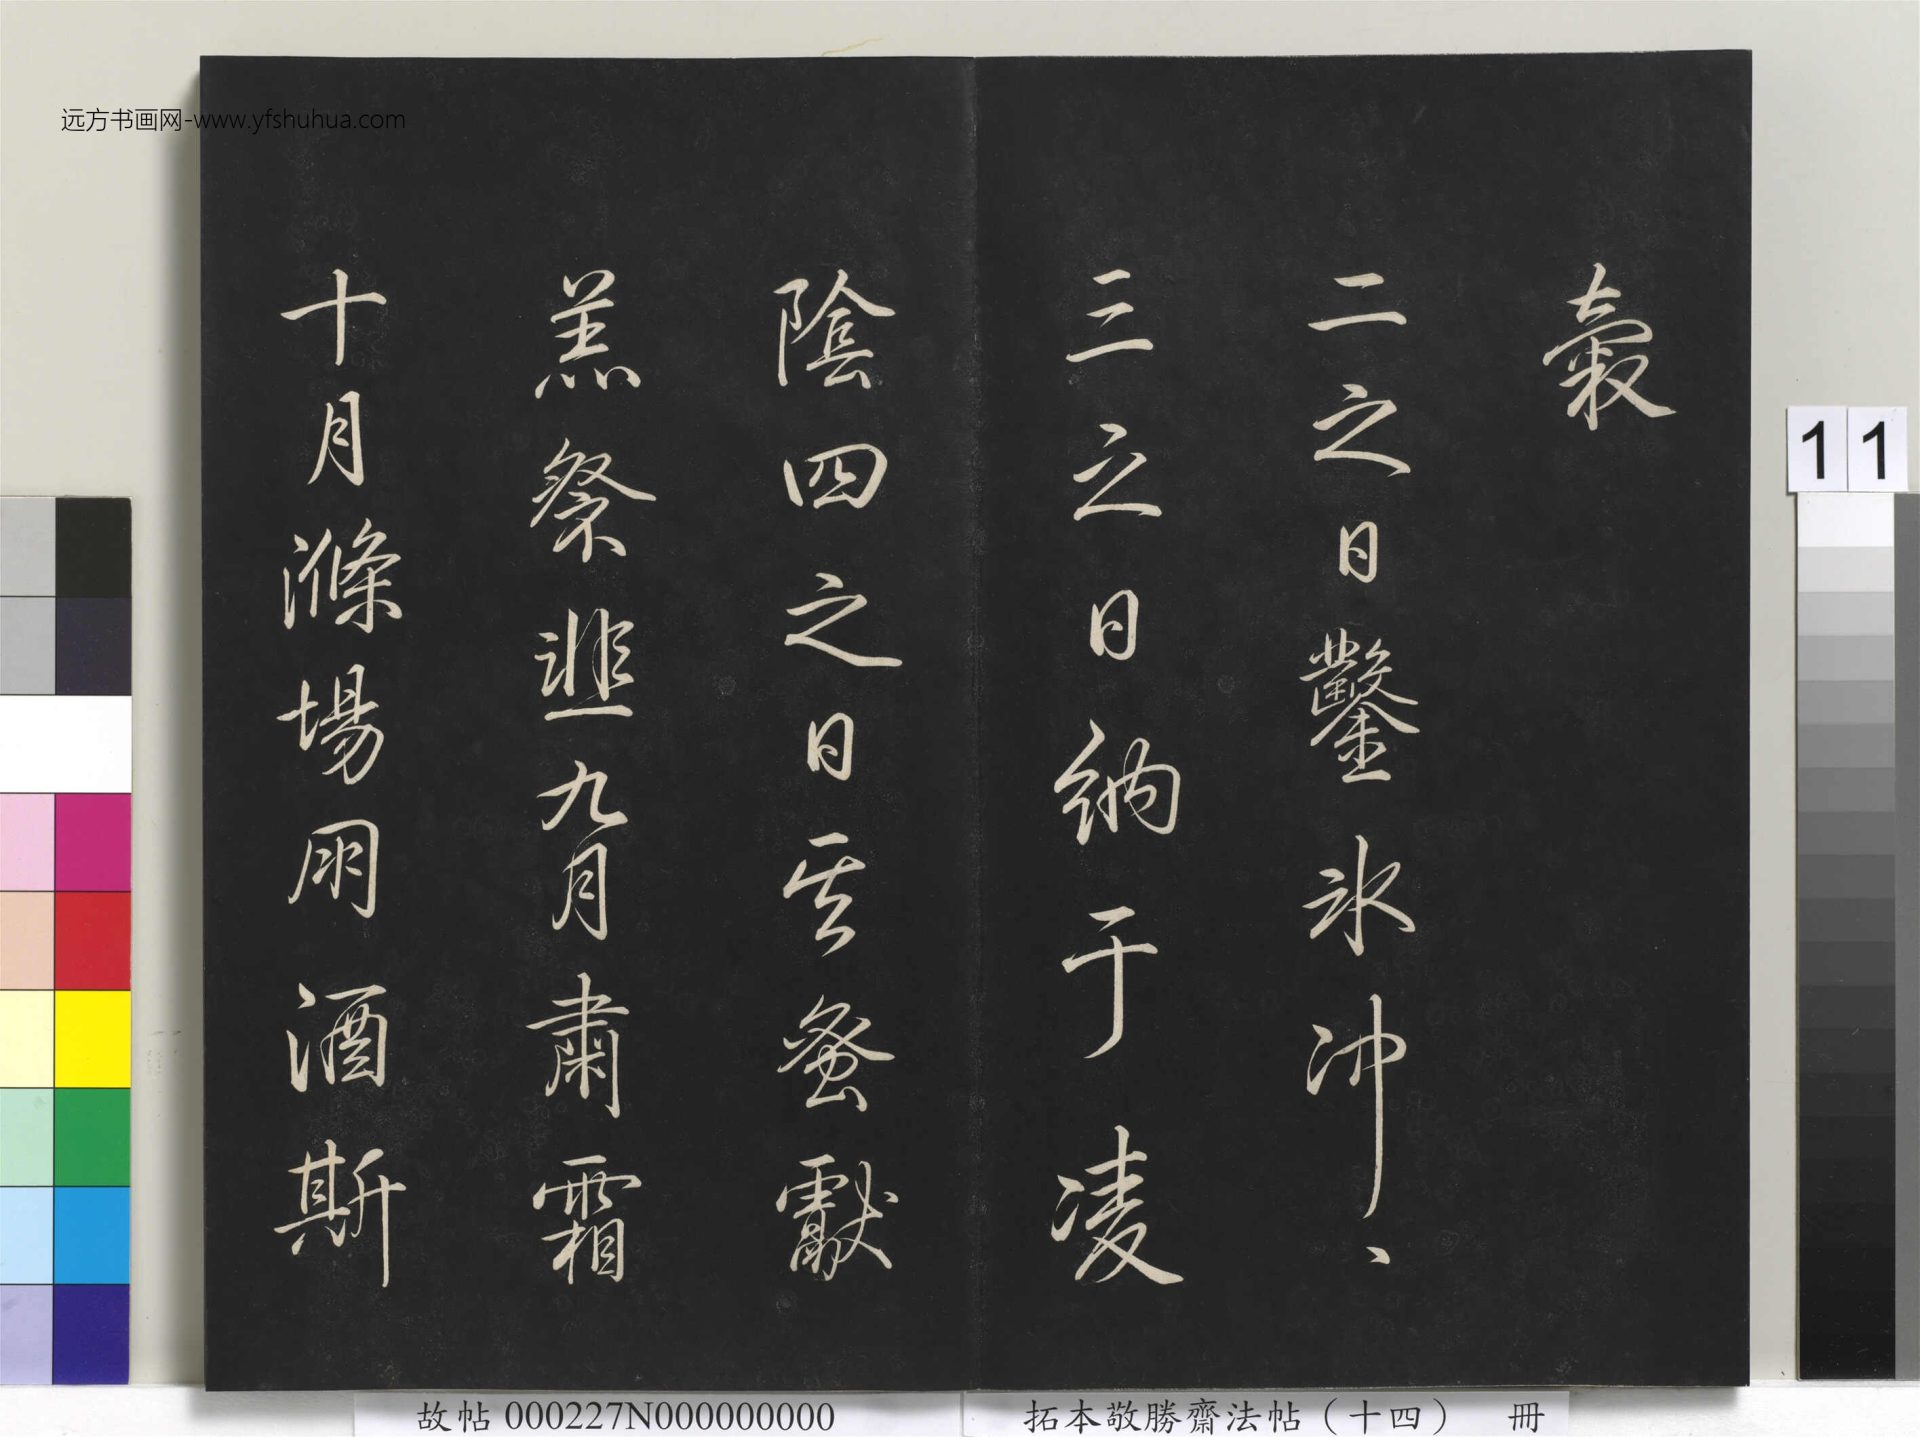 穀
二之日鑿冰沖〻
三之日納于凌
陰四之日其蚤獻
羔祭韭九月肅霜
十月滌場朋酒斯
远方书画网-www.yfshuhua.com
11
故帖 000227N000000000
拓本敬勝齋法帖（十四） 冊